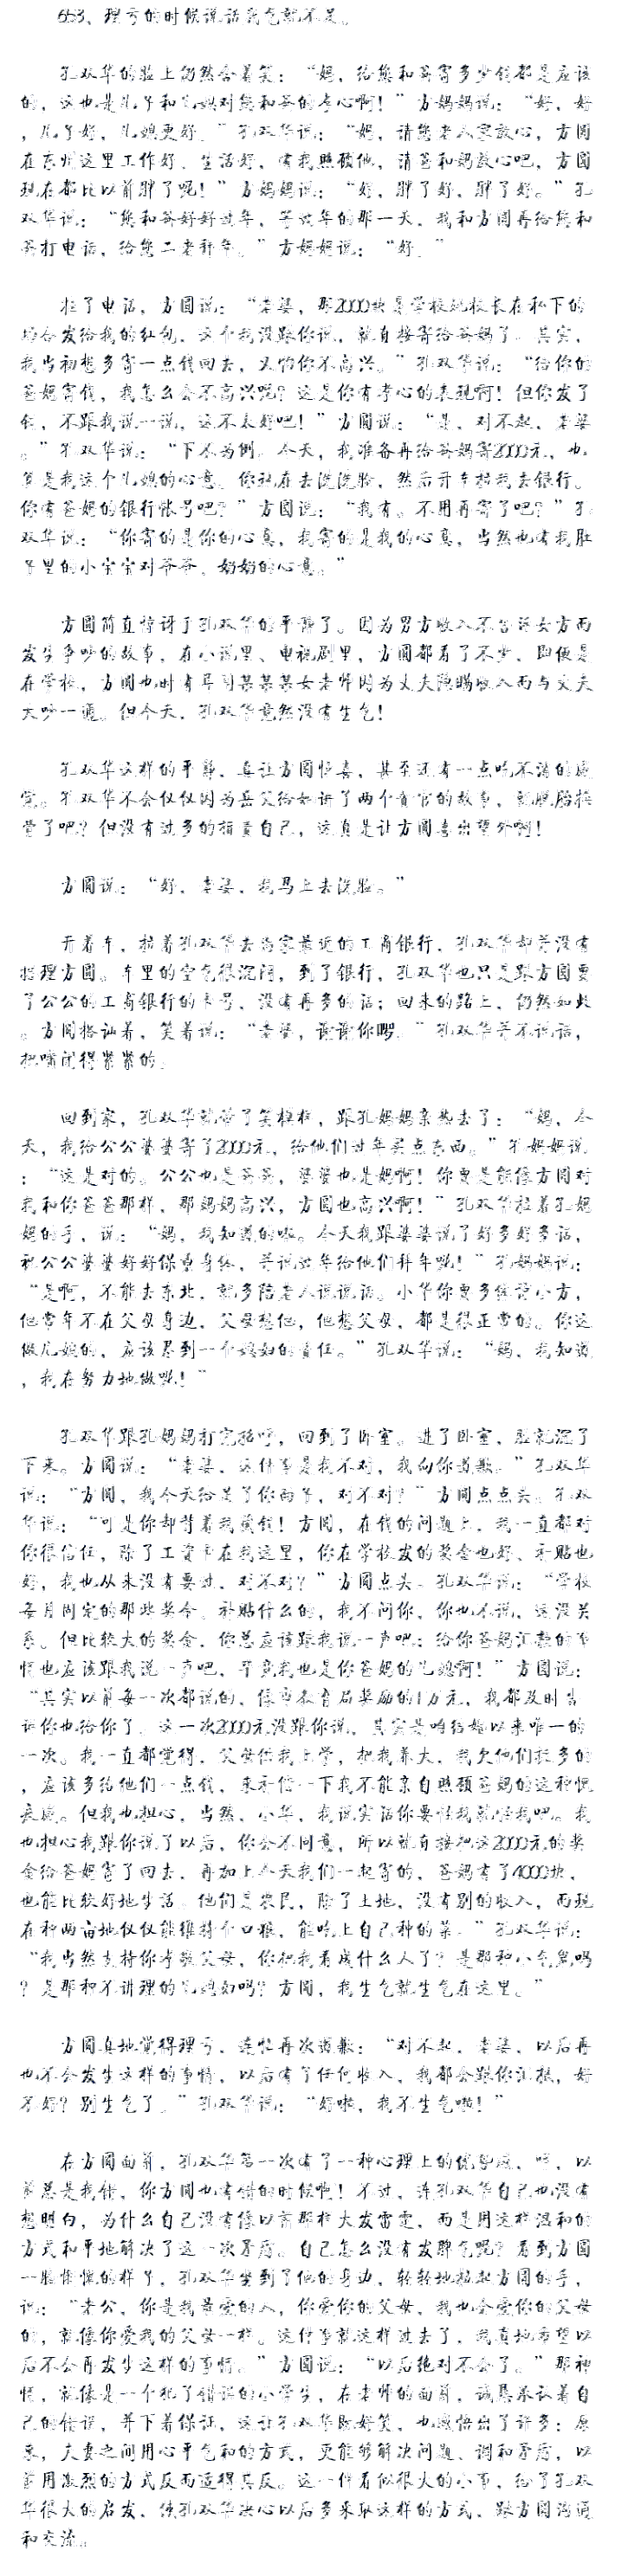 653、理亏的时候说话我气就不足。
孔双华的脸上仍然带着笑：“妈，给您和爸寄多少钱都是应该
的，这也是儿子和儿媳对您和爸的孝心啊！”方妈妈说：“好，好
，儿子好，儿媳更好。”孔双华说：“妈，请您老人家放心，方圆
在东州这里工作好、生活好，有我照顾他，请爸和妈放心吧，方圆
现在都比以前胖了呢！”方妈妈说：“好，胖了好，胖了好。”孔
双华说：“您和爸好好过年，等过年的那一天，我和方圆再给您和
爸打电话，给您二老拜年。”方妈妈说：“好。”
挂了电话，方圆说：“老婆，那2000块是学校姚校长在私下的
场合发给我的红包，这个我没跟你说，就直接寄给爸妈了。其实，
我当初想多寄一点钱回去，又怕你不高兴。”孔双华说：“给你的
爸妈寄钱，我怎么会不高兴呢？这是你有孝心的表现啊！但你发了
钱，不跟我说一说，这不太好吧！”方圆说：“是，对不起，老婆
。”孔双华说：“下不为例。今天，我准备再给爸妈寄2000元，也
算是我这个儿媳的心意。你现在去洗洗脸，然后开车拉我去银行。
你有爸妈的银行账号吧？”方圆说：“我有。不用再寄了吧？”孔
双华说：“你寄的是你的心意，我寄的是我的心意，当然也有我肚
子里的小宝宝对爷爷、奶奶的心意。”
方圆简直惊讶于孔双华的平静了。因为男方收入不告诉女方而
发生争吵的故事，在小说里、电视剧里，方圆都看了不少，即便是
在学校，方圆也时有耳闻某某某女老师因为丈夫隐瞒收入而与丈夫
大吵一通。但今天，孔双华竟然没有生气！
孔双华这样的平静，真让方圆惊喜，甚至还有一点吃不消的感
觉。孔双华不会仅仅因为岳父给她讲了两个贪官的故事，就脱胎换
骨了吧？但没有过多的指责自己，这真是让方圆喜出望外啊！
方圆说：“好，老婆，我马上去洗脸。”
开着车，拉着孔双华去离家最近的工商银行，孔双华却并没有
搭理方圆。车里的空气很沉闷，到了银行，孔双华也只是跟方圆要
了公公的工商银行的卡号，没有再多的话；回来的路上，仍然如此
。方圆搭讪着，笑着说：“老婆，谢谢你啊。”孔双华并不说话，
把嘴闭得紧紧的。
回到家，孔双华就带了笑模样，跟孔妈妈亲热去了：“妈，今
天，我给公公婆婆寄了2000元，给他们过年买点东西。”孔妈妈说
：“这是对的。公公也是爸爸，婆婆也是妈啊！你要是能像方圆对
我和你爸爸那样，那妈妈高兴，方圆也高兴啊！”孔双华拉着孔妈
妈的手，说：“妈，我知道的啦。今天我跟婆婆说了好多好多话，
祝公公婆婆好好保重身体，并说过年给他们拜年呢！”孔妈妈说：
“是啊，不能去东北，就多陪老人说说话。小华你要多体谅小方，
他常年不在父母身边，父母想他，他想父母，都是很正常的。你这
做儿媳的，应该尽到一个媳妇的责任。”孔双华说：“妈，我知道
，我在努力地做呢！”
孔双华跟孔妈妈打完招呼，回到了卧室。进了卧室，脸就沉了
下来。方圆说：“老婆，这件事是我不对，我向你道歉。”孔双华
说：“方圆，我今天给足了你面子，对不对？”方圆点点头。孔双
华说：“可是你却背着我藏钱！方圆，在钱的问题上，我一直都对
你很信任，除了工资卡在我这里，你在学校发的奖金也好、补贴也
好，我也从来没有要过，对不对？”方圆点头。孔双华说：“学校
每月固定的那些奖金、补贴什么的，我不问你，你也不说，这没关
系。但比较大的奖金，你总应该跟我说一声吧；给你爸妈汇款的事
情也应该跟我说一声吧，毕竟我也是你爸妈的儿媳啊！”方圆说：
“其实以前每一次都说的，像市教育局奖励的1万元，我都及时告
诉你也给你了，这一次2000元没跟你说，其实是咱结婚以来唯一的
一次。我一直都觉得，父母供我上学，把我养大，我欠他们挺多的
，应该多给他们一点钱，来补偿一下我不能亲自照顾爸妈的这种愧
疚感。但我也担心，当然，小华，我说实话你要怪我就怪我吧。我
也担心我跟你说了以后，你会不同意，所以就直接把这2000元的奖
金给爸妈寄了回去，再加上今天我们一起寄的，爸妈有了4000块，
也能比较好地生活。他们是农民，除了土地，没有别的收入，而现
在种两亩地仅仅能维持个口粮，能吃上自己种的菜。”孔双华说：
“我当然支持你孝敬父母，你把我看成什么人了？是那种小气鬼吗
？是那种不讲理的儿媳妇吗？方圆，我生气就生气在这里。”
方圆真地觉得理亏，连忙再次道歉：“对不起，老婆，以后再
也不会发生这样的事情，以后有了任何收入，我都会跟你汇报，好
不好？别生气了。”孔双华说：“好啦，我不生气啦！”
在方圆面前，孔双华第一次有了一种心理上的优势感，哼，以
前总是我错，你方圆也有错的时候啊！不过，连孔双华自己也没有
想明白，为什么自己没有像以前那样大发雷霆，而是用这样温和的
方式和平地解决了这一次矛盾。自己怎么没有发脾气呢？看到方圆
一脸惭愧的样子，孔双华坐到了他的身边，轻轻地拉起方圆的手，
说：“老公，你是我最爱的人，你爱你的父母，我也会爱你的父母
的，就像你爱我的父母一样。这件事就这样过去了，我真地希望以
后不会再发生这样的事情。”方圆说：“以后绝对不会了。”那神
情，就像是一个犯了错误的小学生，在老师的面前，诚恳承认着自
己的错误，并下着保证，这让孔双华既好笑，也感悟出了许多：原
来，夫妻之间用心平气和的方式，更能够解决问题、调和矛盾，以
前用激烈的方式反而适得其反。这一件看似很大的小事，给了孔双
华很大的启发，使孔双华决心以后多采取这样的方式，跟方圆沟通
和交流。